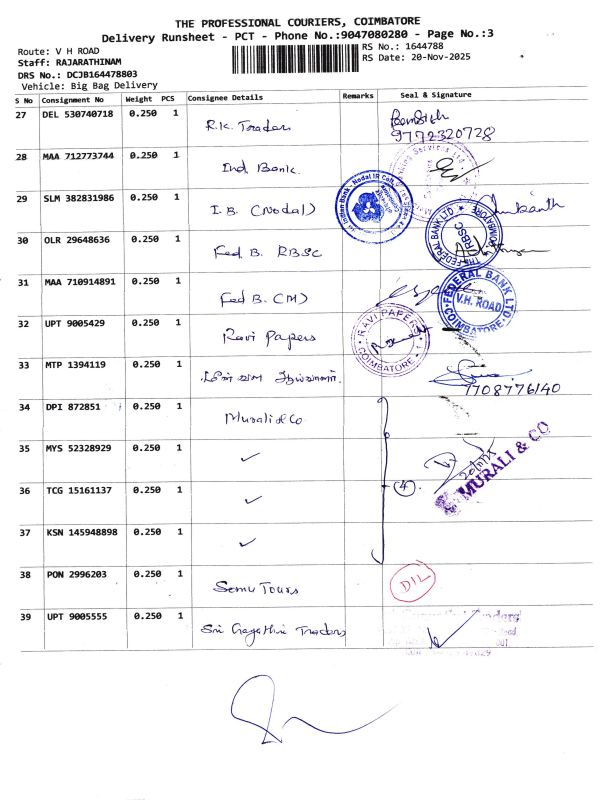 THE PROFESSIONAL COURIERS, COIMBATORE
Delivery Runsheet - PCT - Phone No.:9047080280 - Page No.:3
Route: V H ROAD
RS No.: 1644788
Staff: RAJARATHINAM
RS Date: 20-Nov-2025
DRS No.: DCJB164478803
Vehicle: Big Bag Delivery
S No Consignment No Weight PCS Consignee Details Remarks Seal & Signature
27 DEL 530740718 0.250 1 R.K. Traders 9772320728
28 MAA 712773744 0.250 1 Ind Bank
29 SLM 382831986 0.250 1 I.B. (Nodal)
30 OLR 29648636 0.250 1 Fed B. RBSC THE FEDERAL BANK LTD. RBSC
31 MAA 710914891 0.250 1 Fed B. (M) FEDERAL BANK LTD V.H. ROAD COIMBATORE
32 UPT 9005429 0.250 1 Ravi Papers RAVI PAPERS COIMBATORE
33 MTP 1394119 0.250 1 7708776140
34 DPI 872851 0.250 1 Murali & Co
35 MYS 52328929 0.250 1 ✓ MURALI & CO
36 TCG 15161137 0.250 1 ✓ 4
37 KSN 145948898 0.250 1 ✓
38 PON 2996203 0.250 1 Semu Tours DIL
39 UPT 9005555 0.250 1 Sri Gayathri Traders